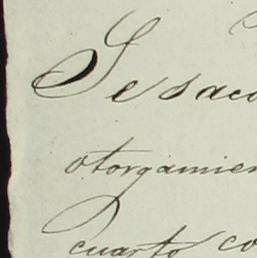 Se saco
otorgamien
cuarto co